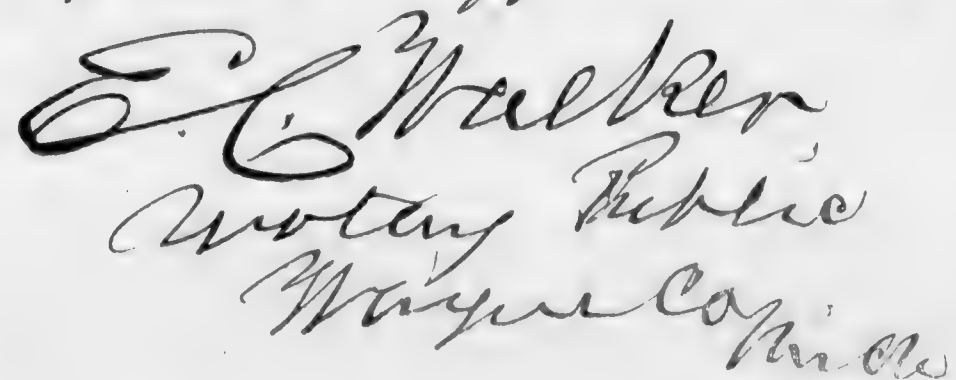 E. C. Walker
Notary Public
Wayne Co Mich